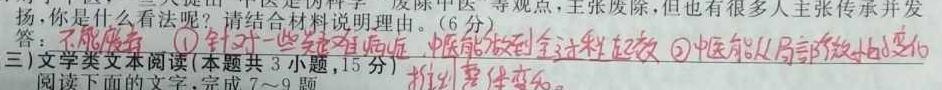 "中医是伪科学""废除中医"等观点,主张废除,但也有很多人主张传承并发
扬,你是什么看法呢?请结合材料说明理由。(6分)
答:不能废弃 ①针对一些疑难病症 中医能做到全过程起效 ②中医能从局部微小的变化
推到整体变化。
三)文学类文本阅读(本题共3小题,15分)
阅读下面的文字,完成7~9题